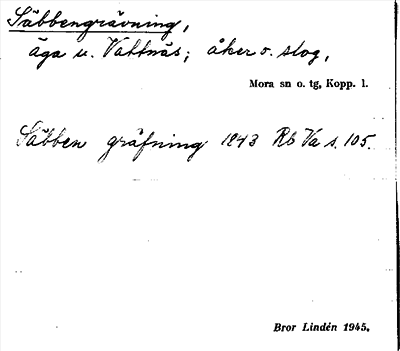 Säbbengrävning,
äga u. Vattnäs; åker o. slog,
Mora sn o. tg, Kopp. l.
Säbben gräfning 1843 Rb Va s. 105.
Bror Lindén 1945.